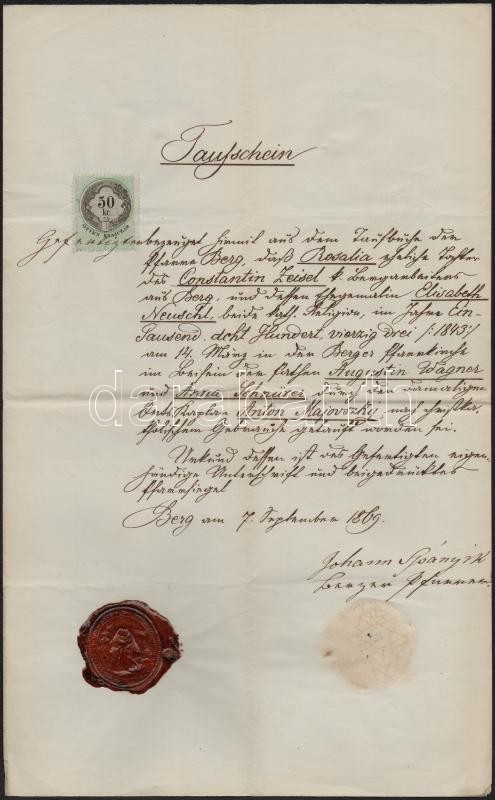 Taufschein
50
kr.
ÖTVEN KRAJCZÁR
Gefertigter bezeuget hiemit aus dem Taufbuche der
Pfarre Berg, daß Rosalia eheliche Tochter
des Constantin Zeisel k. Bergarbeiters
aus Berg, und dessen Ehegemalin Elisabeth
Neuschl, beide kath. Religion, im Jahre Ein-
Tausend, Acht Hundert, vierzig drei /:1843:/
am 14. März in der Berger Pfarrkirche
im Beisein der Pathen Augustin Wagner
und Anna durch den damaligen
Ortskaplan Anton Majovszky nach christka-
tholischem Gebrauche getauft worden sei.
Urkund dessen ist des Gefertigten eigen-
händige Unterschrift und beigedrücktes
Pfarrsiegel
Berg am 7. September 1869.
Johann Spányik
Berger Pfarrer
darabanth